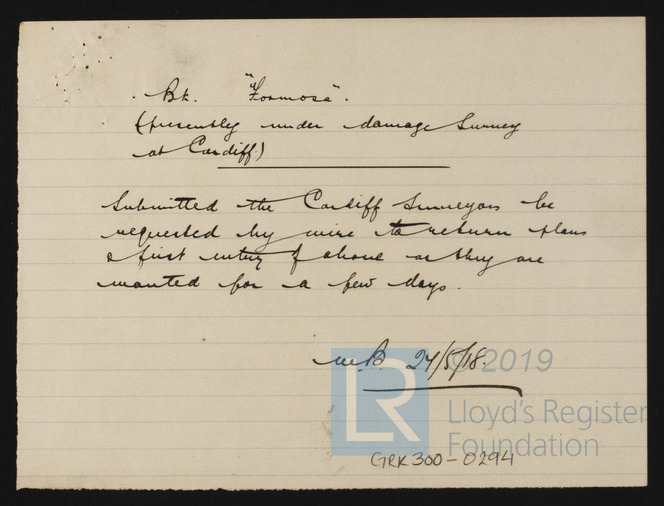 Bk. "Formosa".
(presently under damage Survey
at Cardiff.)
Submitted the Cardiff Surveyors be
requested by wire to return plans
& first entry of above as they are
wanted for a few days.
24/5/18.
© 2019
LR
Lloyd's Register
Foundation
GRK300-0294